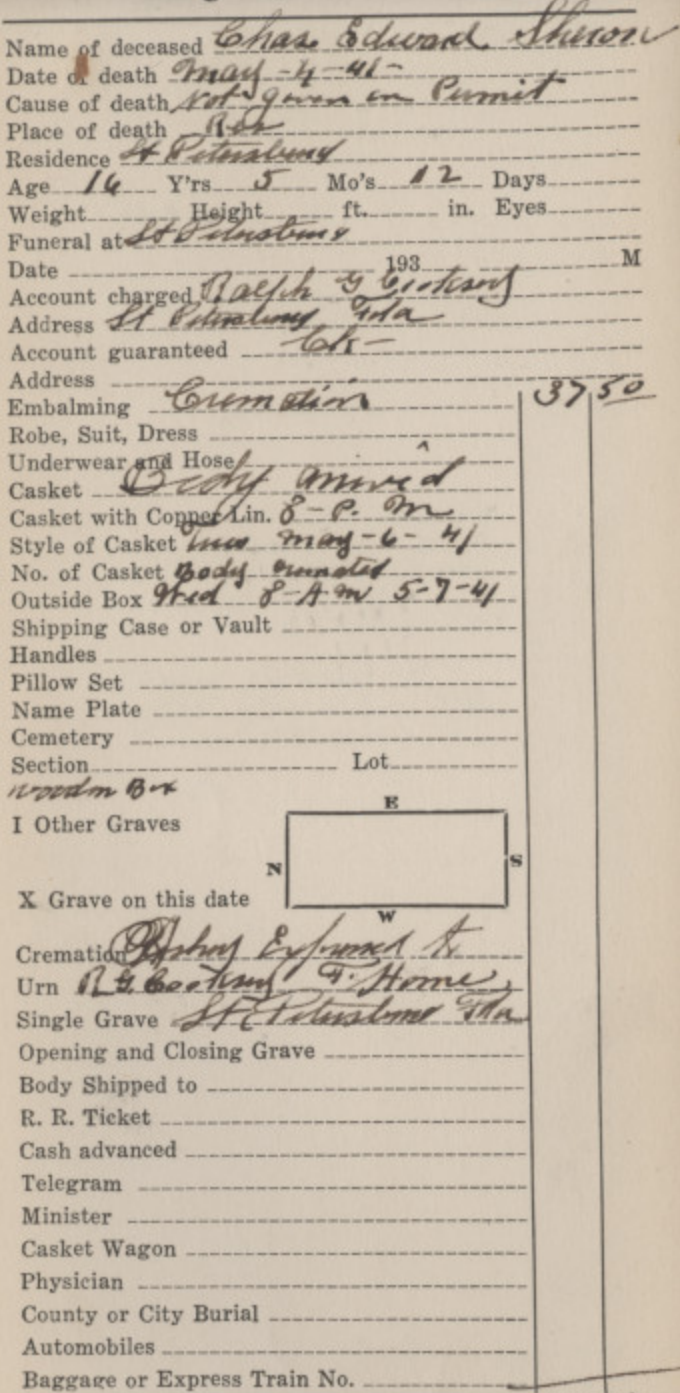 Name of deceased Chas. Edward Sheron
Date of death May - 4 - 41 -
Cause of death Not given on Permit
Place of death Res
Residence St Petersburg
Age 16 Y'rs 5 Mo's 12 Days
Weight Height ft. in. Eyes
Funeral at St Petersburg
Date 193 M
Account charged Ralph G Cooksey
Address St Petersburg Fla
Account guaranteed Ck -
Address
Embalming Cremation 37 50
Robe, Suit, Dress
Underwear and Hose
Casket Body arrived
Casket with Copper Lin. 8 - P. M
Style of Casket Tues May - 6 - 41
No. of Casket Body cremated
Outside Box Wed 8 - A M 5-7-41
Shipping Case or Vault
Handles
Pillow Set
Name Plate
Cemetery
Section Lot
wooden Box
E
I Other Graves
N S
X Grave on this date
W
Cremation Ashes Expressed to
Urn R G Cooksey F. Home,
Single Grave St. Petersburg Fla
Opening and Closing Grave
Body Shipped to
R. R. Ticket
Cash advanced
Telegram
Minister
Casket Wagon
Physician
County or City Burial
Automobiles
Baggage or Express Train No.